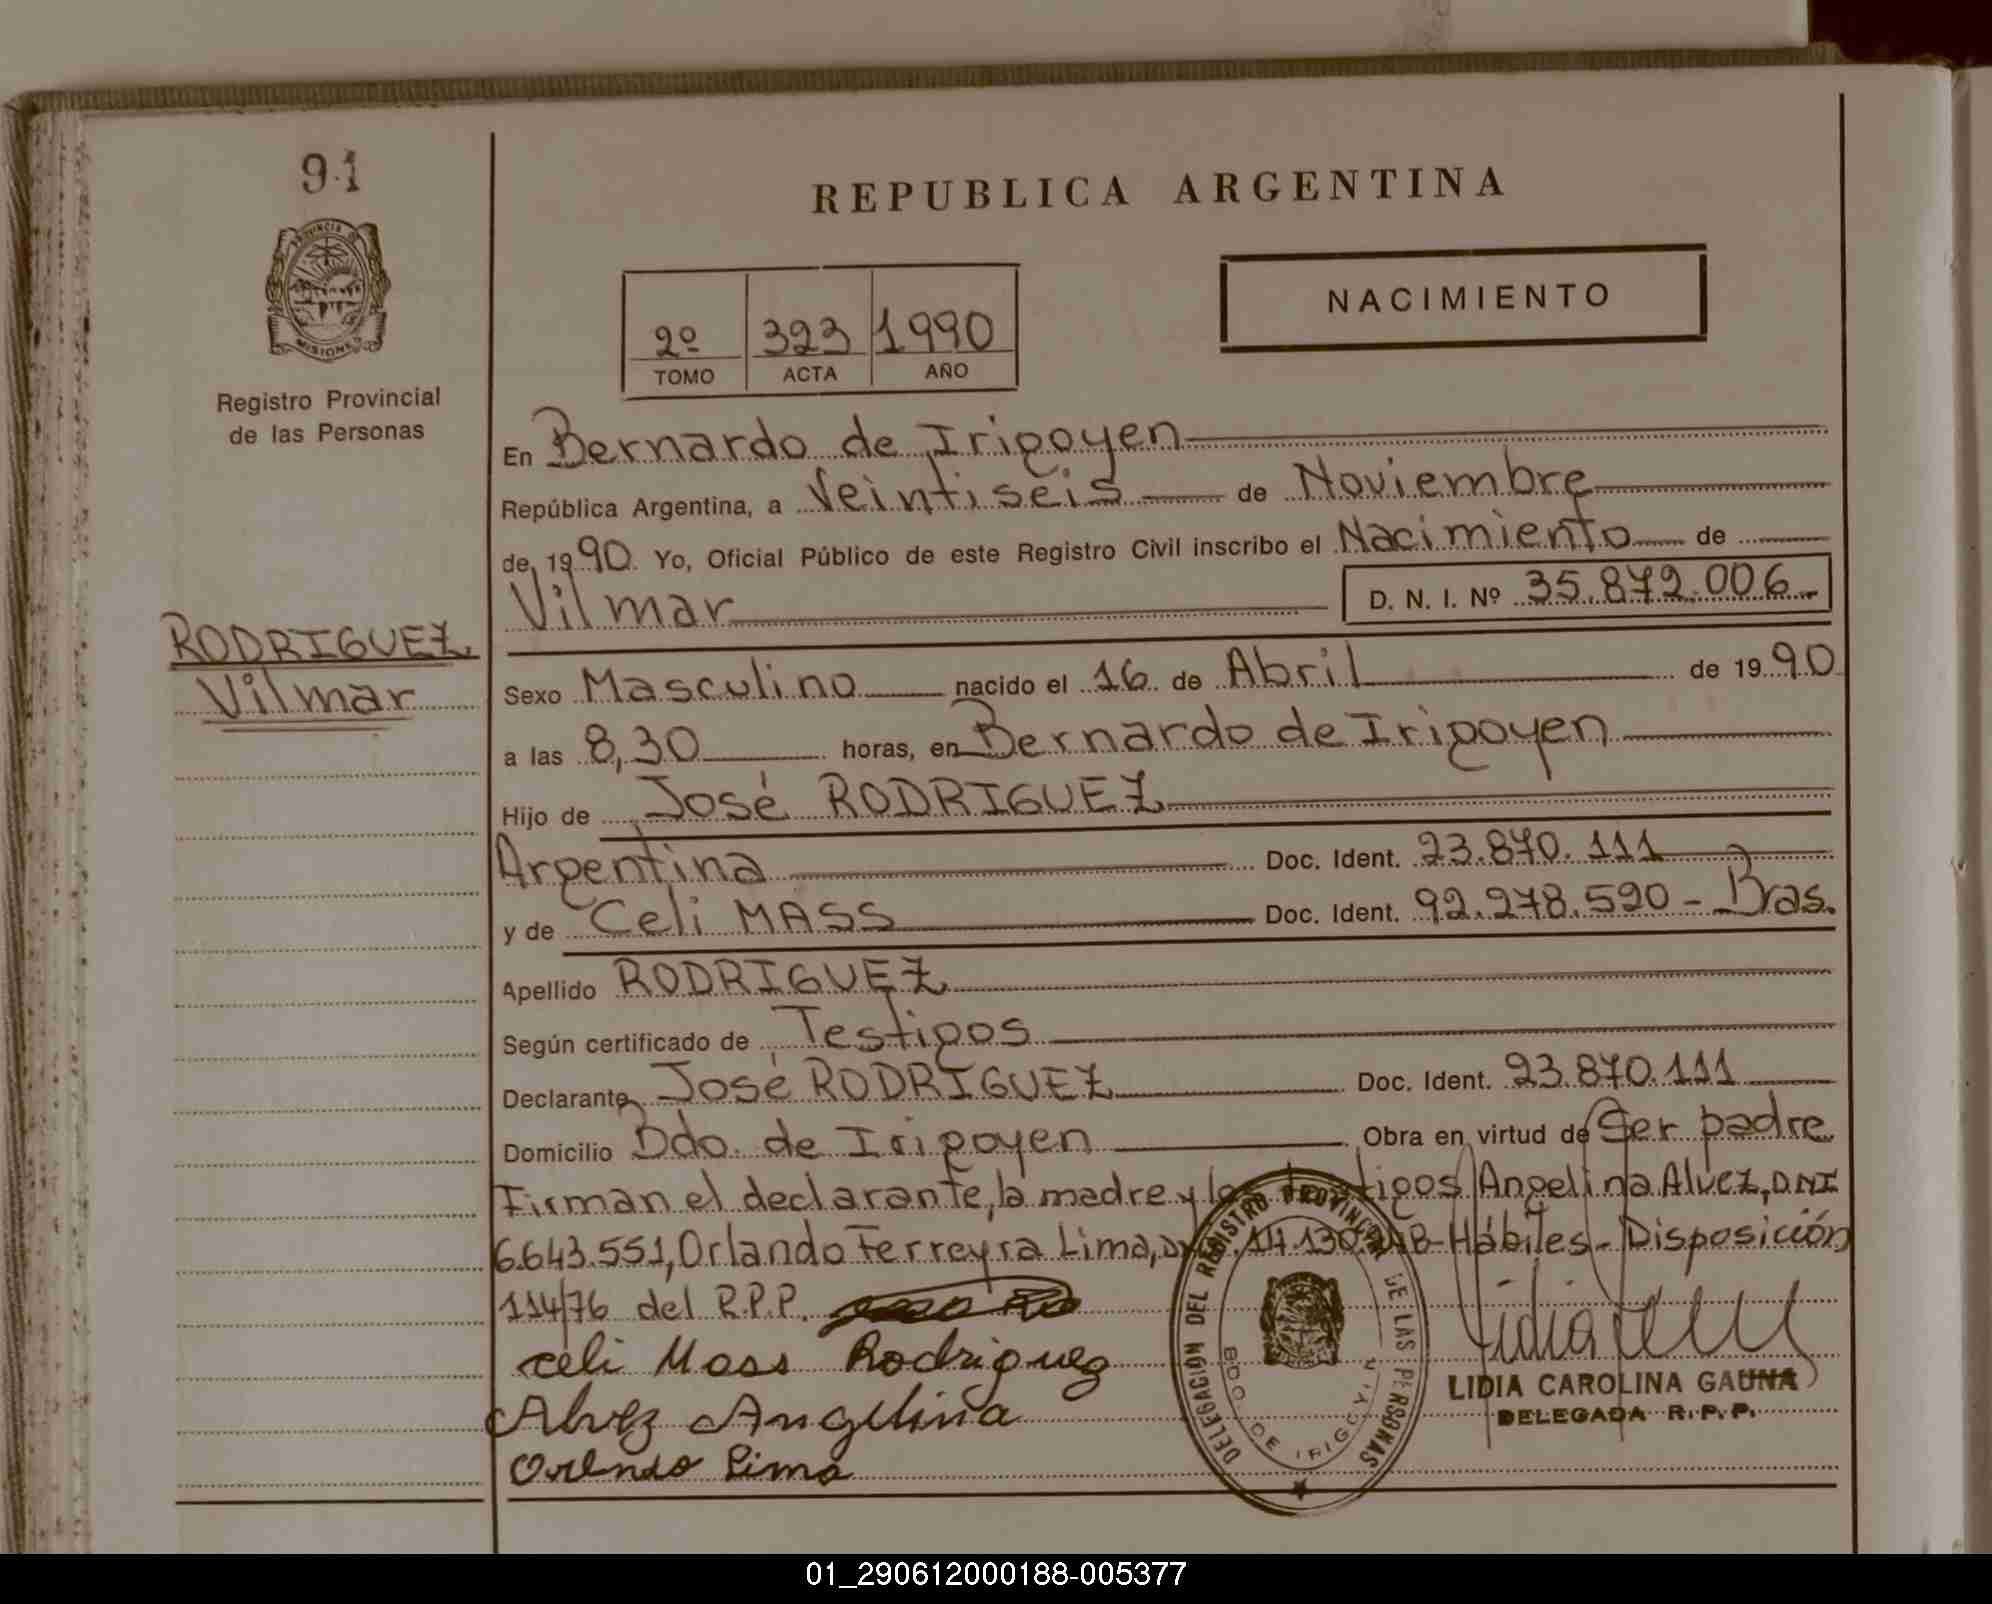 91
REPUBLICA ARGENTINA
PROVINCIA DE
MISIONES
Registro Provincial
de las Personas
2º 323 1990
TOMO ACTA AÑO
NACIMIENTO
En Bernardo de Irigoyen
República Argentina, a Veintiseis de Noviembre
de 1990 Yo, Oficial Público de este Registro Civil inscribo el Nacimiento de
Vilmar D. N. I. Nº 35.872.006
RODRIGUEZ
Vilmar
Sexo Masculino nacido el 16 de Abril de 1990
a las 8,30 horas, en Bernardo de Irigoyen
Hijo de José RODRIGUEZ
Argentina Doc. Ident. 23.870.111
y de Celi MASS Doc. Ident. 92.278.520 - Bras.
Apellido RODRIGUEZ
Según certificado de Testigos
Declarante José RODRIGUEZ Doc. Ident. 23.870.111
Domicilio Bdo. de Irigoyen Obra en virtud de Ser padre
Firman el declarante, la madre y los testigos Angelina Alvez, DNI
6.643.551, Orlando Ferreyra Lima, - Hábiles - Disposición
114/76 del R.P.P.
celi Mass Rodriguez
Alvez Angelina
Orlando Lima
DELEGACIÓN DEL REGISTRO PROVINCIAL DE LAS PERSONAS
BDO. DE IRIGOYEN
LIDIA CAROLINA GAUNA
DELEGADA R.P.P.
01_290612000188-005377